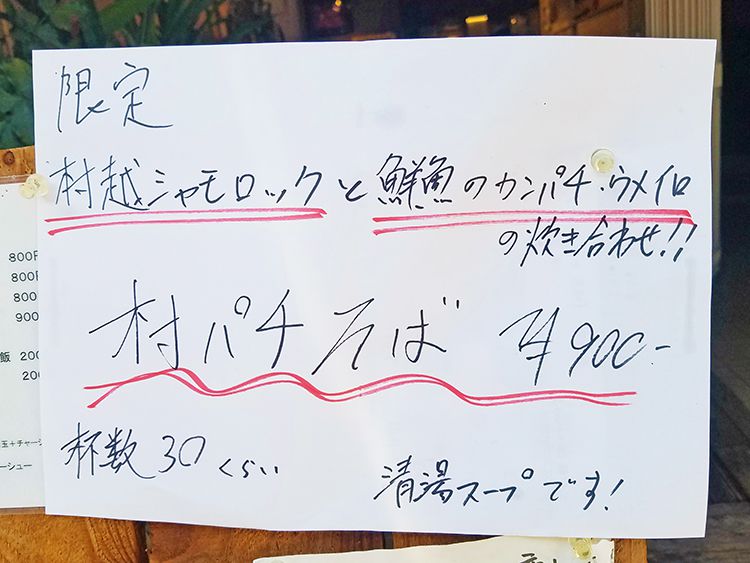 限定
村越シャモロックと鮮魚のカンパチ・ウメイロ
の炊き合わせ!!
村パチそば ¥900-
杯数30くらい
清湯スープです!
800
800
800
900
飯 200
200
玉+チャーシ
ーシュー